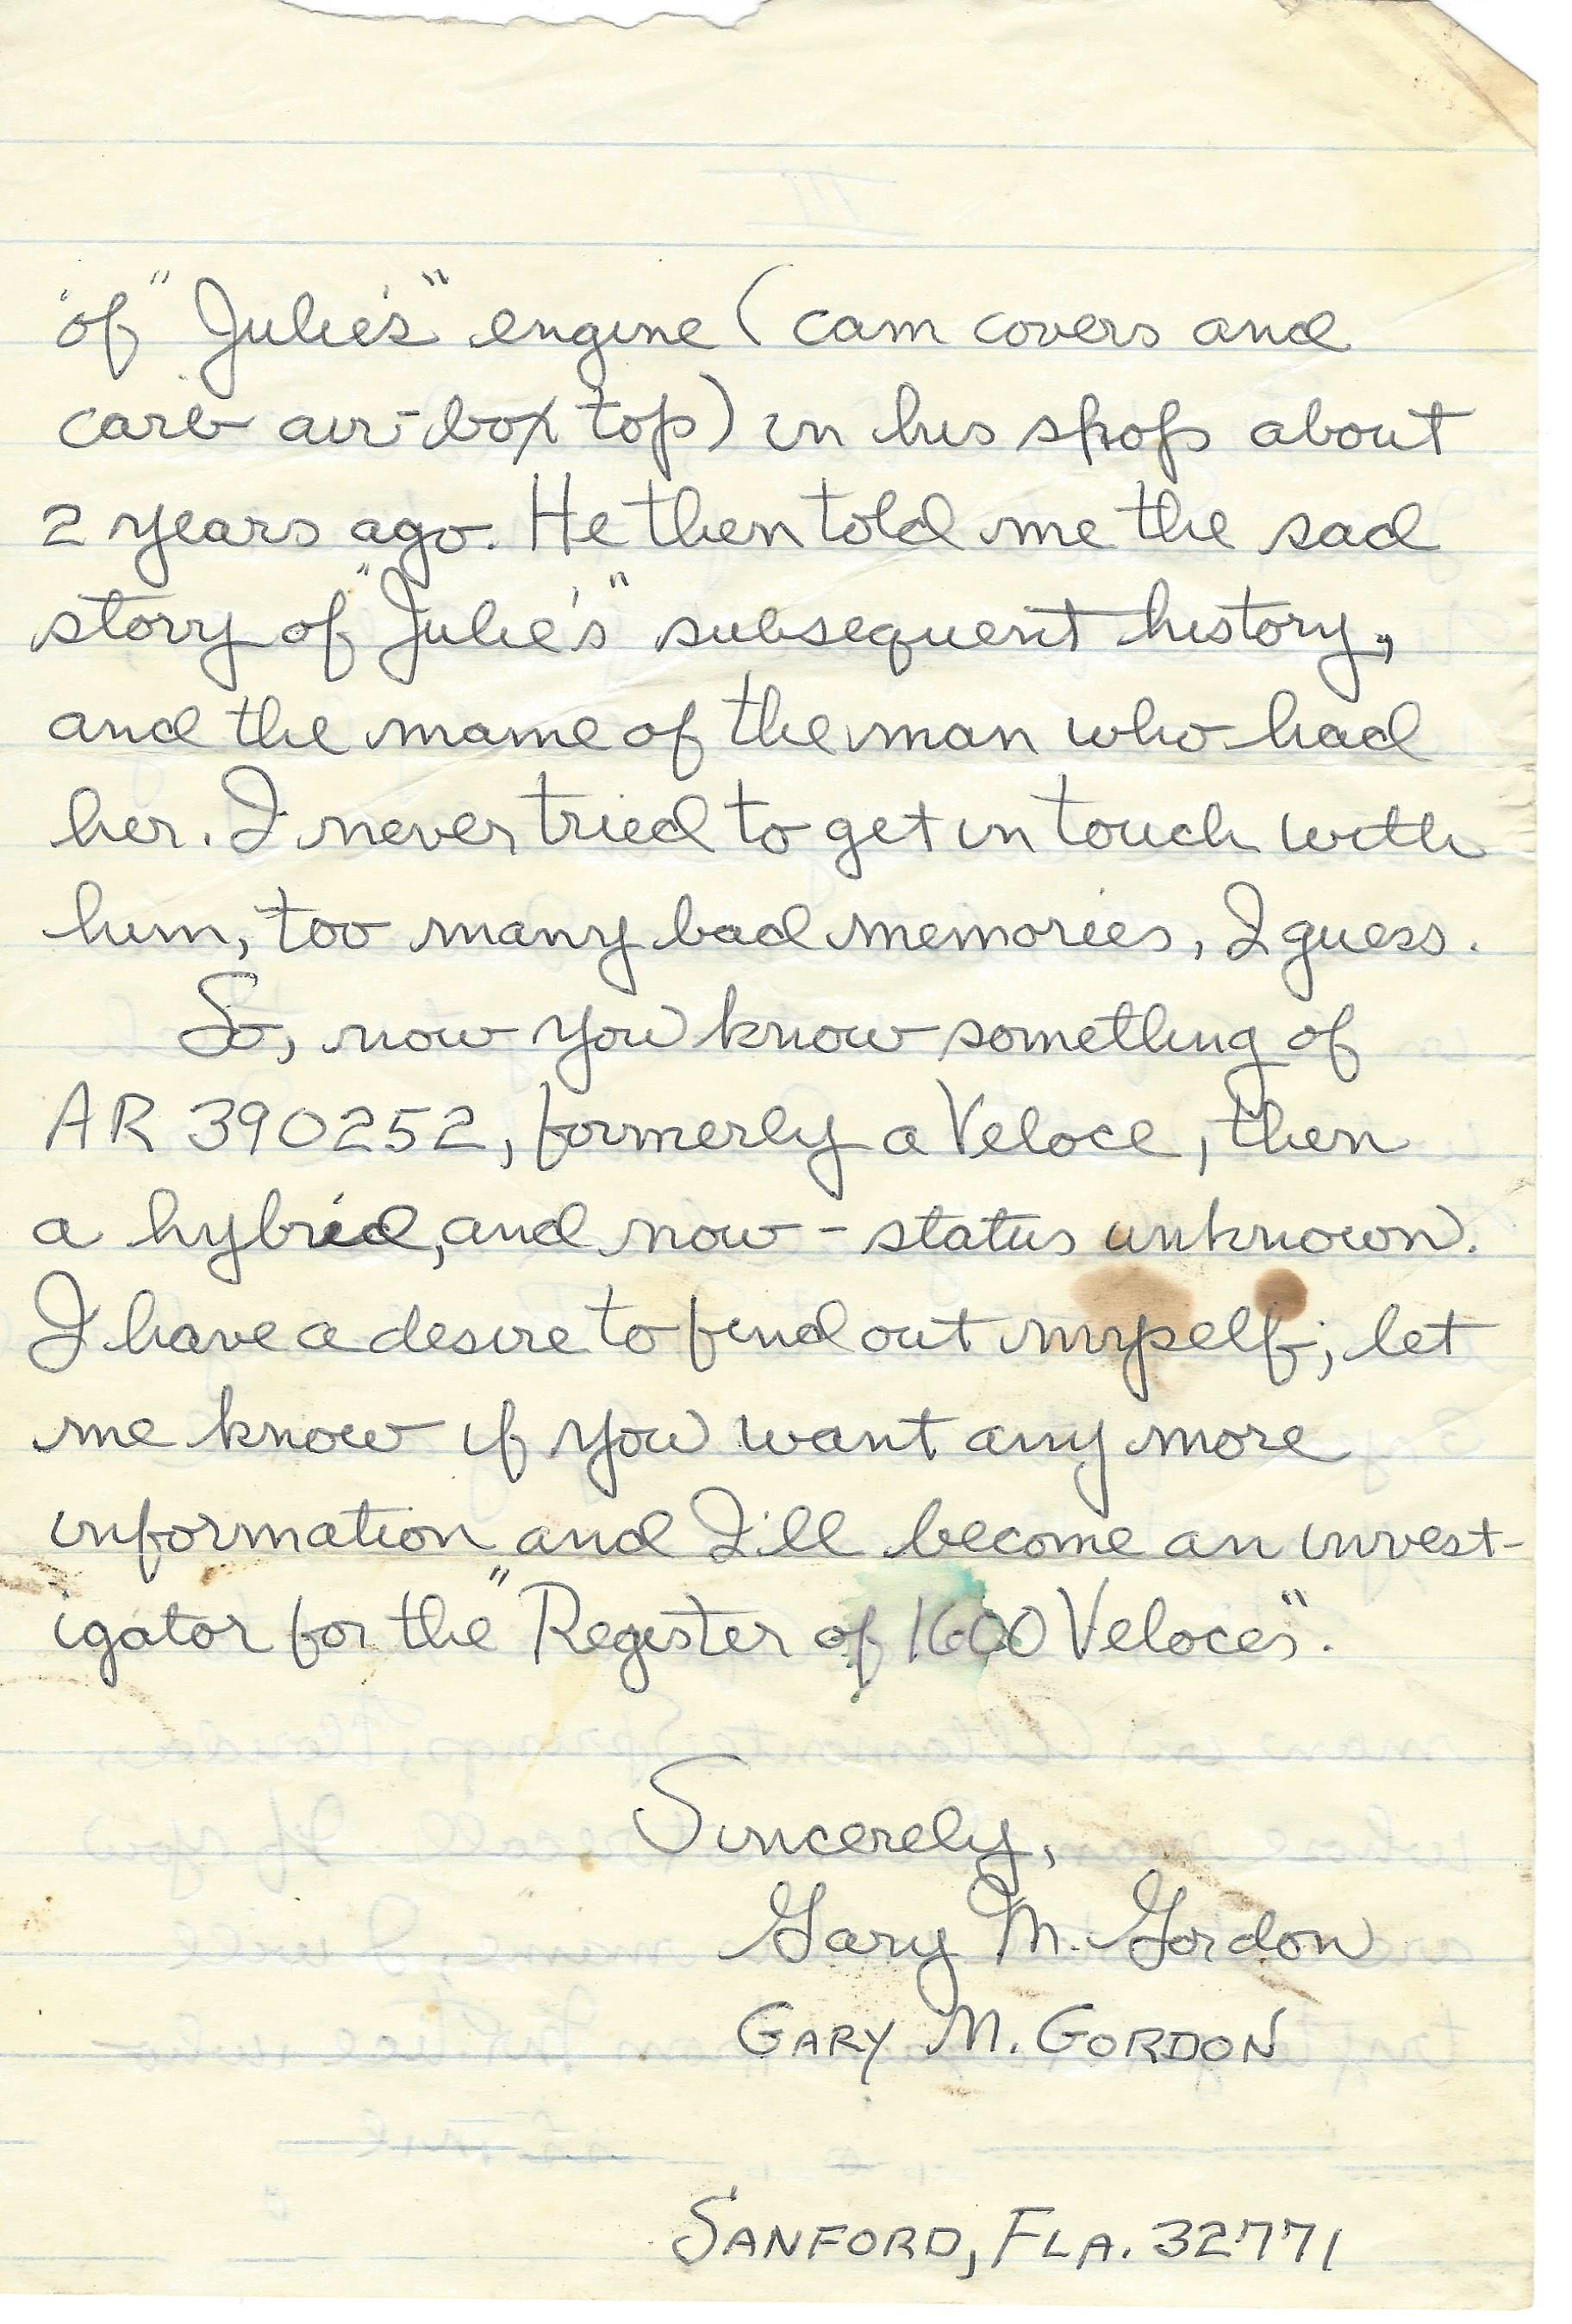 of "Julie's" engine (cam covers and
carb air-box top) in his shop about
2 years ago. He then told me the sad
story of "Julie's" subsequent history,
and the name of the man who had
her. I never tried to get in touch with
him, too many bad memories, I guess.
So, now you know something of
AR 390252, formerly a Veloce, then
a hybrid, and now - status unknown.
I have a desire to find out myself; let
me know if you want any more
information and I'll become an invest-
igator for the "Register of 1600 Veloces".
Sincerely,
Gary M. Gordon
GARY M. GORDON
SANFORD, FLA. 32771